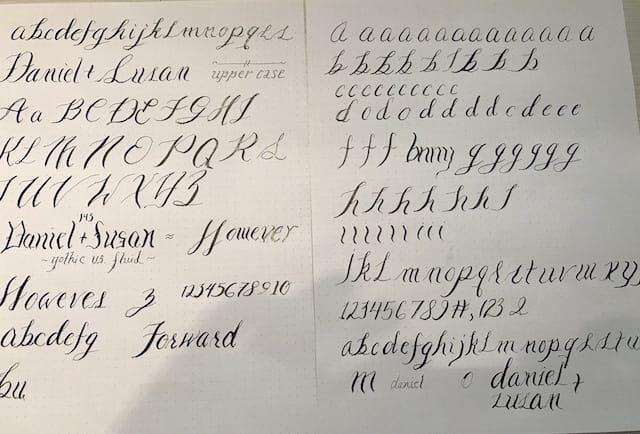 abcdefghijklmnopqrs
Daniel + Susan
upper case
Aa B C D E F G H I
K L M N O P Q R S
T U V W X Y Z
143
Daniel + Susan ~ However
~ gothic vs. fluid ~
Howeves z 12345678910
abcdefg Forward
bu
a a a a a a a a a a a a a
b b b b b b b b b
c c c c c c c c c c
d o d o d d d d c d e c c
f f f bnmj g g g g g g
h h h h h h
i i i i i i i i i
jkl m nopqrstuvwxyz
123456789#, 123 2
abcdefghijkl m nopqrstu
m daniel o daniel +
susan